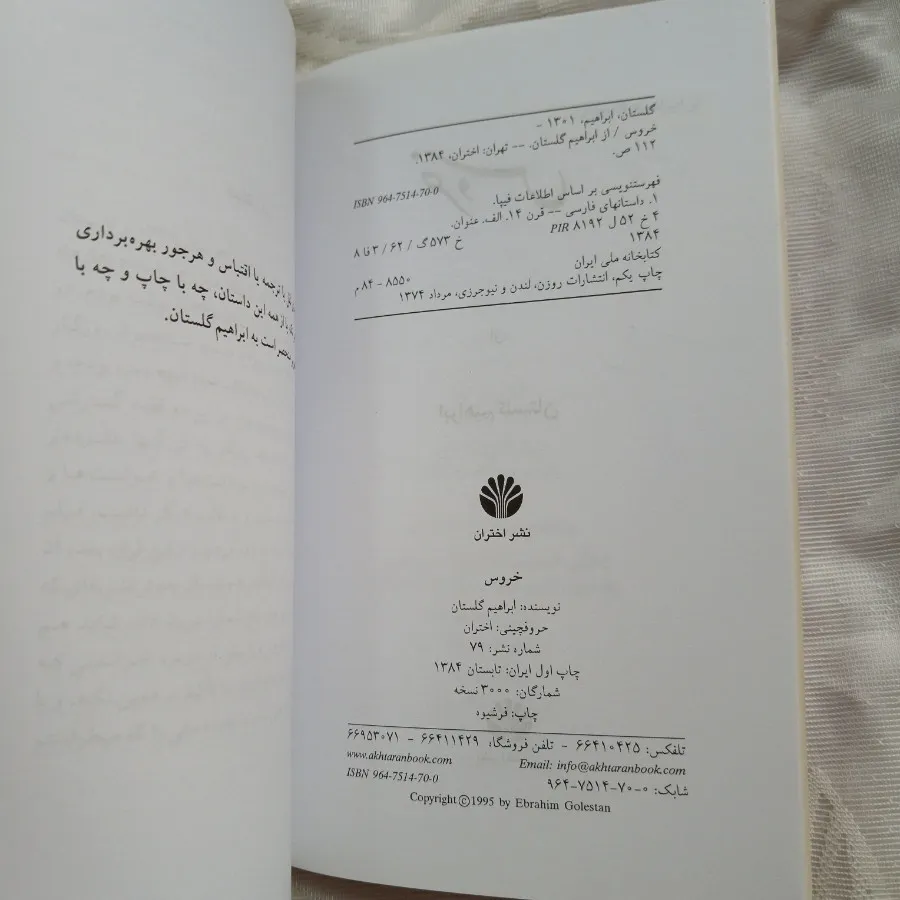 گلستان، ابراهیم، ۱۳۰۱ -
خروس / از ابراهیم گلستان. -- تهران: اختران، ۱۳۸۴.
۱۱۲ ص.
ISBN 964-7514-70-0
فهرستنویسی بر اساس اطلاعات فیپا.
۱. داستانهای فارسی -- قرن ۱۴. الف. عنوان.
۴ خ ۵۲ ل PIR ۸۱۹۲ خ ۵۷۳ گ / ۶۲ / ۳ فا ۸
۱۳۸۴
کتابخانه ملی ایران
۸۵۵۰ - ۸۴ م
چاپ یکم، انتشارات روزن، لندن و نیوجرزی، مرداد ۱۳۷۴
نشر اختران
خروس
نویسنده: ابراهیم گلستان
حروفچینی: اختران
شماره نشر: ۷۹
چاپ اول ایران: تابستان ۱۳۸۴
شمارگان: ۳۰۰۰ نسخه
چاپ: فرشیوه
تلفکس: ۶۶۴۱۰۴۲۵ - تلفن فروشگاه: ۶۶۴۱۱۴۲۹ - ۶۶۹۵۳۰۷۱
www.akhtaranbook.com Email: info@akhtaranbook.com
ISBN 964-7514-70-0 شابک: ۰-۷۰-۷۵۱۴-۹۶۴
Copyright © 1995 by Ebrahim Golestan
ترجمه یا اقتباس و هرجور بهره‌برداری
از همه این داستان، چه با چاپ و چه با
منحصر است به ابراهیم گلستان.